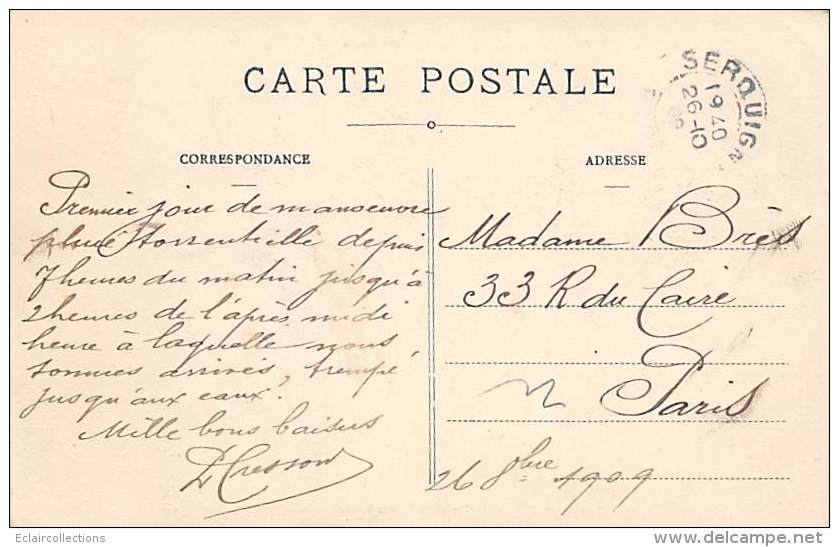 CARTE POSTALE
SERQUIGN
1940
26-10
CORRESPONDANCE
ADRESSE
Premier jour de manoeuvre
pluie torrentielle depuis
7 heures du matin jusqu'à
2 heures de l'après midi
heure à laquelle nous
sommes arrivés, trempé
jusqu'aux eaux.
Mille bons baisers
D Cresson
Madame Brès
33 R du Caire
Paris
26 8bre 1909
Eclaircollections
delcampe.net